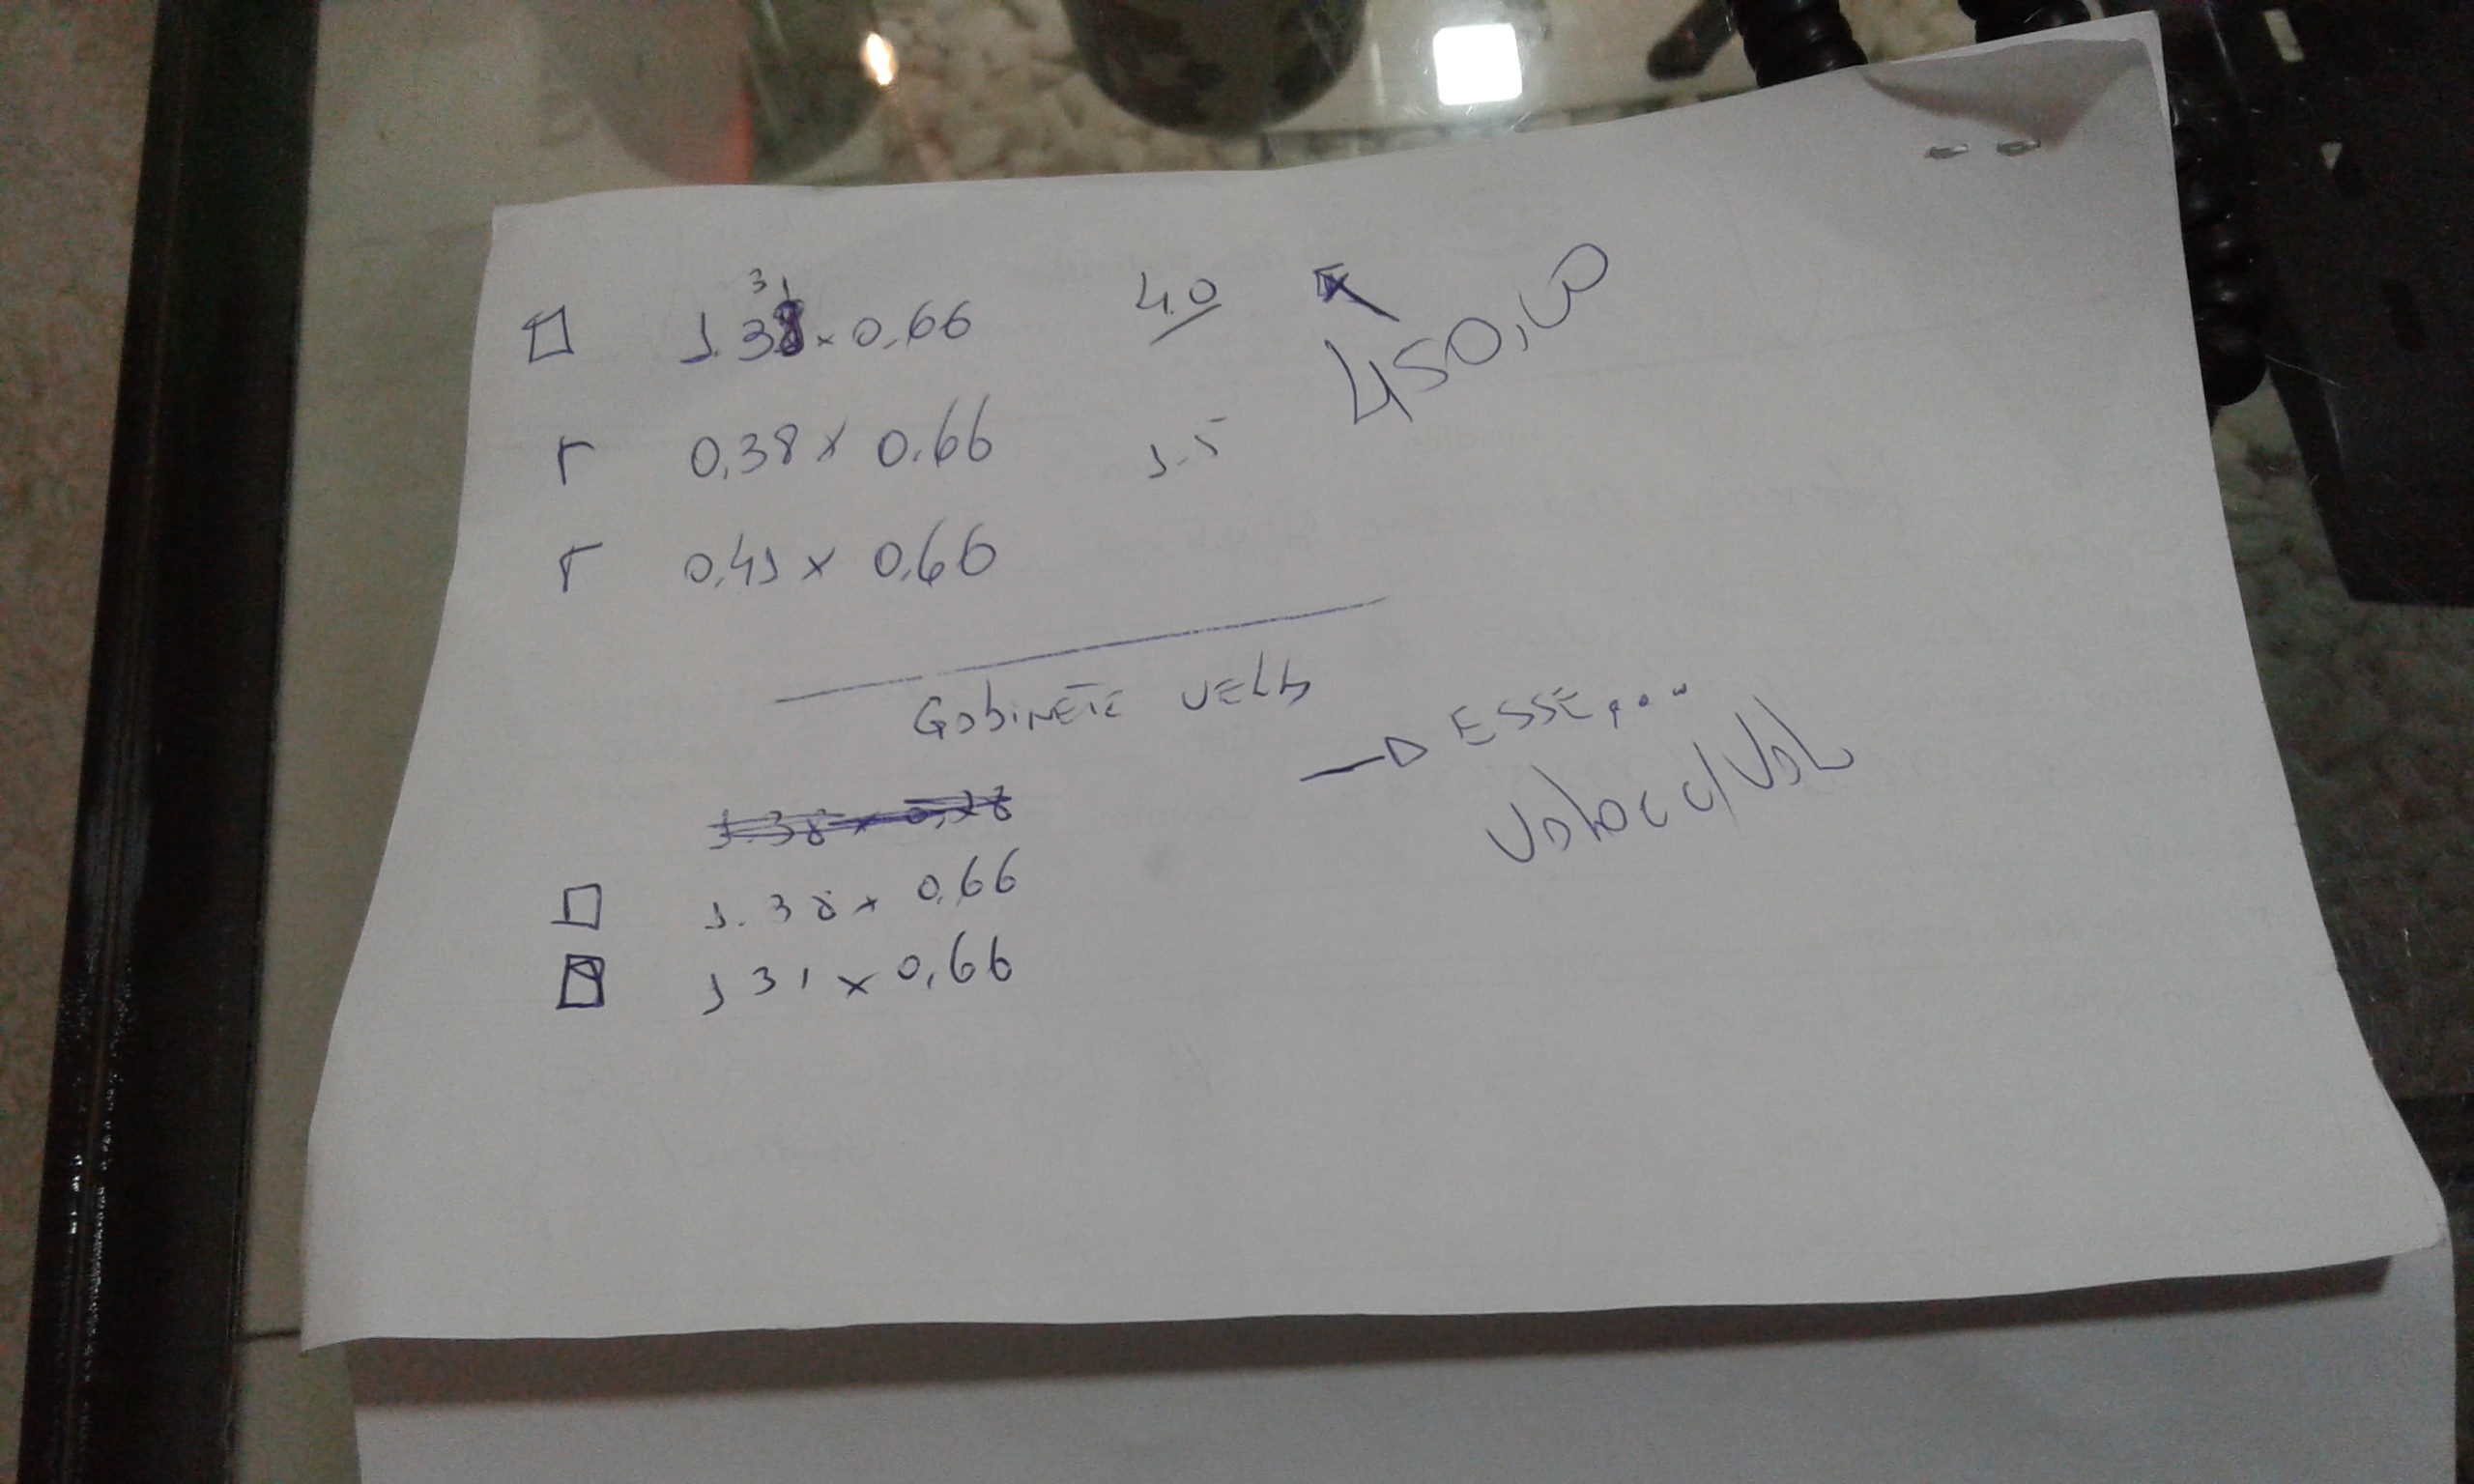 31
1.38 x 0,66 4.0
450,00
0,38 x 0.66 1.5
0,41 x 0,66
GabiNETE VElh
→ ESSE...
1.38 x 0,66
131 x 0,66